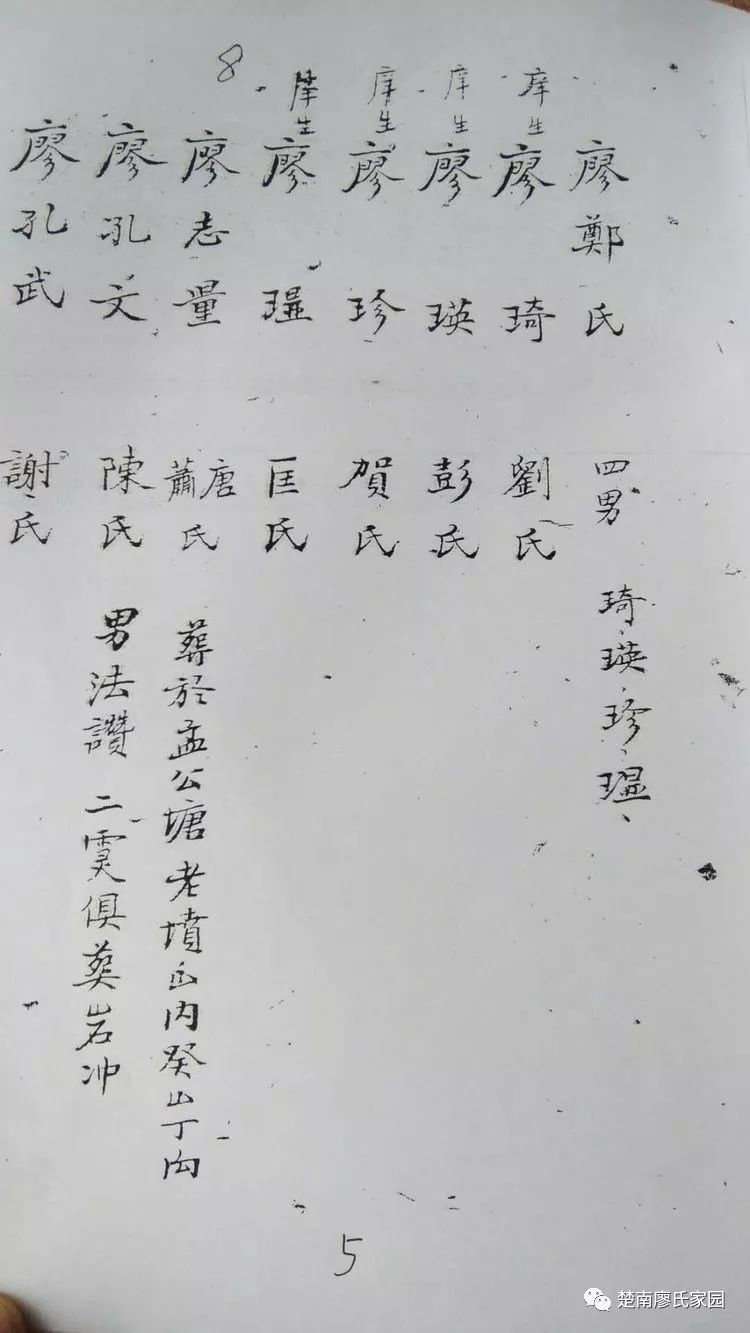 8
廖鄭氏 四男 琦、瑛、珍、瑥、
庠生廖琦 劉氏
庠生廖瑛 彭氏
庠生廖珍 賀氏
庠生廖瑥 匡氏
廖志量 唐蕭氏 葬於孟公塘老墳山內癸山丁向
廖孔文 陳氏 男法讚 二 俱葬岩冲
廖孔武 謝氏
5
楚南廖氏家园